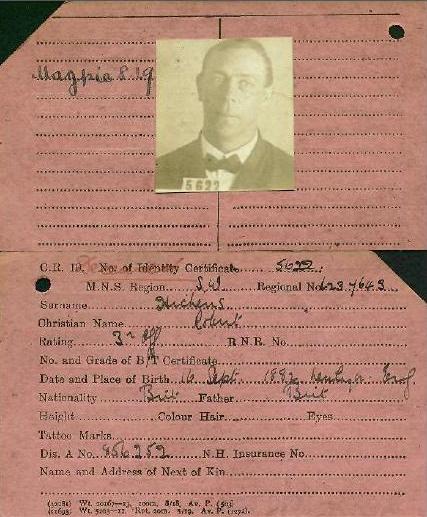 Magpia 8.19
5622
C.R. 10. No. of Identity Certificate 5622
M.N.S. Region S.49 Regional No. 123.7643
Surname
Christian Name Robert
Rating 3rd Off R.N.R. No.
No. and Grade of B/T Certificate
Date and Place of Birth 16 Sept. 1882
Nationality Brit Father Brit
Height Colour Hair Eyes
Tattoo Marks
Dis. A No. 856252 N.H. Insurance No.
Name and Address of Next of Kin